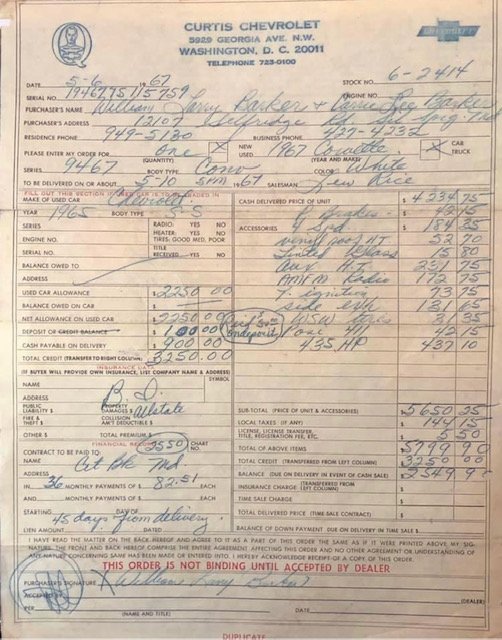 CURTIS CHEVROLET
5929 GEORGIA AVE. N.W.
WASHINGTON, D. C. 20011
TELEPHONE 723-0100
CHEVROLET
DATE 5-6 1967 STOCK NO. 6-2414
SERIAL NO. 194677S115759 ENGINE NO.
PURCHASER'S NAME William Larry Barker &
PURCHASER'S ADDRESS 12107 Selfridge Rd Sil Spig Md
RESIDENCE PHONE 949-5130 BUSINESS PHONE 427-4232
PLEASE ENTER MY ORDER FOR One (QUANTITY) X NEW USED 1967 Corvette (YEAR AND MAKE) X CAR TRUCK
SERIES 9467 BODY TYPE Conv COLOR White
TO BE DELIVERED ON OR ABOUT 5-10 5 PM 1967 SALESMAN Lew Rice
FILL OUT THIS SECTION IF USED CAR IS TO BE TRADED IN
MAKE OF USED CAR Chevrolet CASH DELIVERED PRICE OF UNIT $ 4234 75
YEAR 1965 BODY TYPE S-S P Brakes 42 15
SERIES RADIO: YES NO ACCESSORIES 4 Spd 184 35
ENGINE NO. HEATER: YES NO TIRES: GOOD MED, POOR vinyl roof HT 52 70
SERIAL NO. TITLE RECEIVED YES NO Tinted Glass 15 80
BALANCE OWED TO Aux H.T. 231 75
ADDRESS AM FM Radio 172 75
USED CAR ALLOWANCE $ 2250 00 T. ignition 73 75
BALANCE OWED ON CAR $ side exh 131 65
NET ALLOWANCE ON USED CAR $ 2250 00 WSW tires 31 35
DEPOSIT OR CREDIT BALANCE $ 100 00 Paid 50.00 on deposit Posi 411 42 15
CASH PAYABLE ON DELIVERY $ 900 00 435 HP 437 10
TOTAL CREDIT (TRANSFER TO RIGHT COLUMN) $ 3250.00
INSURANCE DATA
(IF BUYER WILL PROVIDE OWN INSURANCE, LIST COMPANY NAME & ADDRESS)
NAME SYMBOL
ADDRESS B.O.
PUBLIC LIABILITY $ PROPERTY DAMAGES $ Allstate SUB-TOTAL (PRICE OF UNIT & ACCESSORIES) $ 5650 25
FIRE & THEFT $ COLLISION AM'T DEDUCTIBLE $ LOCAL TAXES (IF ANY) $ 144 15
LICENSE, LICENSE TRANSFER, TITLE, REGISTRATION FEE, ETC. 5 50
OTHER $ TOTAL PREMIUM $ TOTAL OF ABOVE ITEMS $ 5799 90
FINANCIAL RECORD
CONTRACT TO BE PAID TO: 2550 CHART NO. TOTAL CREDIT (TRANSFERRED FROM LEFT COLUMN) $ 3250 00
NAME Cit Bk Md BALANCE (DUE ON DELIVERY IN EVENT OF CASH SALE) $ 2549
ADDRESS INSURANCE CHARGE (TRANSFERRED FROM LEFT COLUMN) $
IN 36 MONTHLY PAYMENTS OF $ 82.51 EACH
AND MONTHLY PAYMENTS OF $ EACH TIME SALE CHARGE $
STARTING DAY OF TOTAL DELIVERED PRICE (TIME SALE CONTRACT) $
45 days from delivery
LIEN AMOUNT DATED BALANCE OF DOWN PAYMENT DUE ON DELIVERY IN TIME SALE $
I HAVE READ THE MATTER ON THE BACK HEREOF AND AGREE TO IT AS A PART OF THIS ORDER THE SAME AS IF IT WERE PRINTED ABOVE MY SIGNATURE. THE FRONT AND BACK HEREOF COMPRISE THE ENTIRE AGREEMENT AFFECTING THIS ORDER AND NO OTHER AGREEMENT OR UNDERSTANDING OF ANY NATURE CONCERNING SAME HAS BEEN MADE OR ENTERED INTO. I HEREBY ACKNOWLEDGE RECEIPT OF A COPY OF THIS ORDER.
THIS ORDER IS NOT BINDING UNTIL ACCEPTED BY DEALER
PURCHASER'S SIGNATURE X William Larry Barker
ACCEPTED BY (DEALER)
PER (NAME AND TITLE) DATE (NAME AND TITLE)
DUPLICATE